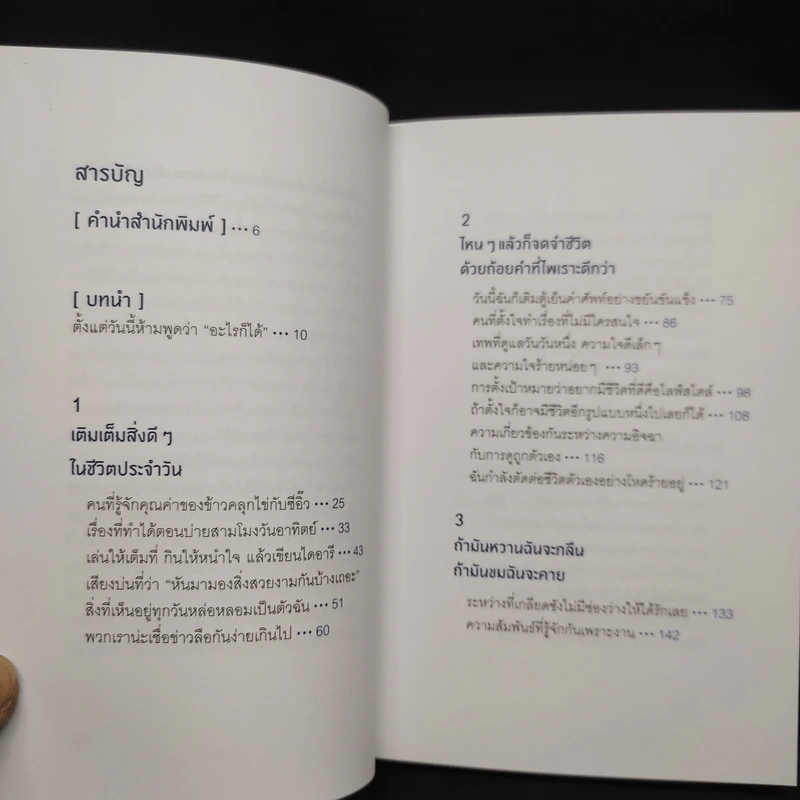 สารบัญ
[ คำนำสำนักพิมพ์ ] ··· 6
[ บทนำ ]
ตั้งแต่วันนี้ห้ามพูดว่า “อะไรก็ได้” ··· 10
1
เติมเต็มสิ่งดี ๆ
ในชีวิตประจำวัน
คนที่รู้จักคุณค่าของข้าวคลุกไข่กับซีอิ๊ว ··· 25
เรื่องที่ทำได้ตอนบ่ายสามโมงวันอาทิตย์ ··· 33
เล่นให้เต็มที่ กินให้หนำใจ แล้วเขียนไดอารี ··· 43
เสียงบ่นที่ว่า “หันมามองสิ่งสวยงามกันบ้างเถอะ”
สิ่งที่เห็นอยู่ทุกวันหล่อหลอมเป็นตัวฉัน ··· 51
พวกเราน่ะเชื่อข่าวลือกันง่ายเกินไป ··· 60
2
ไหน ๆ แล้วก็จดจำชีวิต
ด้วยถ้อยคำที่ไพเราะดีกว่า
วันนี้ฉันก็เติมตู้เย็นคำศัพท์อย่างขยันขันแข็ง ··· 75
คนที่ตั้งใจทำเรื่องที่ไม่มีใครสนใจ ··· 86
เทพที่ดูแลวันวันหนึ่ง ความใจดีเล็ก ๆ
และความใจร้ายหน่อย ๆ ··· 93
การตั้งเป้าหมายว่าอยากมีชีวิตที่ดีคือไลฟ์สไตล์ ··· 98
ถ้าตั้งใจก็อาจมีชีวิตอีกรูปแบบหนึ่งไปเลยก็ได้ ··· 108
ความเกี่ยวข้องกันระหว่างความอิจฉา
กับการดูถูกตัวเอง ··· 116
ฉันกำลังตัดต่อชีวิตตัวเองอย่างโหดร้ายอยู่ ··· 121
3
ถ้ามันหวานฉันจะกลืน
ถ้ามันขมฉันจะคาย
ระหว่างที่เกลียดชังไม่มีช่องว่างให้ได้รักเลย ··· 133
ความสัมพันธ์ที่รู้จักกันเพราะงาน ··· 142